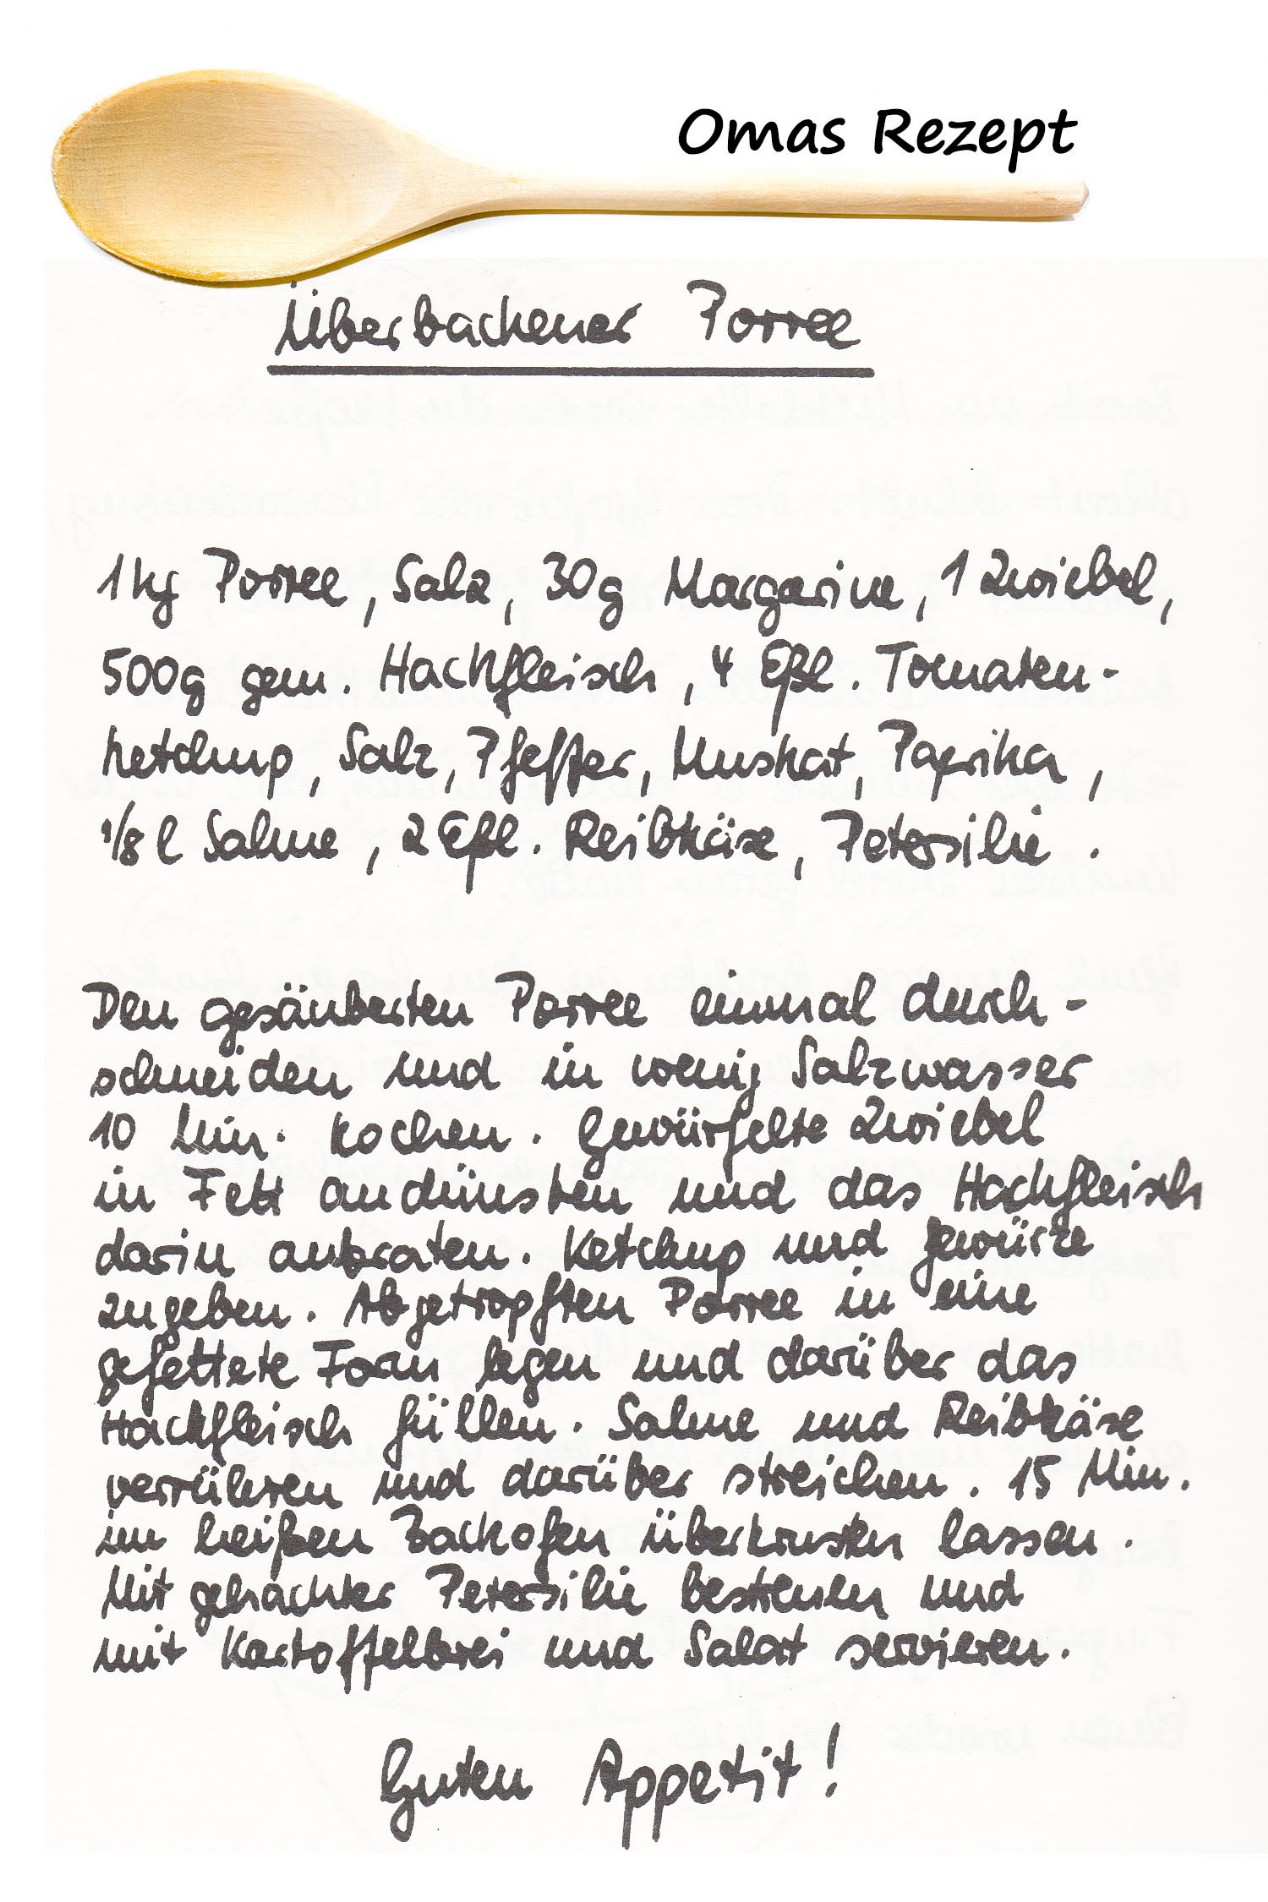 Omas Rezept
Überbackener Porree
1 kg Porree, Salz, 30g Margarine, 1 Zwiebel,
500g gem. Hackfleisch, 4 Eßl. Tomaten-
ketchup, Salz, Pfeffer, Muskat, Paprika,
1/8 l Sahne, 2 Eßl. Reibkäse, Petersilie.
Den gesäuberten Porree einmal durch-
schneiden und in wenig Salzwasser
10 Min. kochen. Gewürfelte Zwiebel
in Fett andünsten und das Hackfleisch
darin anbraten. Ketchup und Gewürze
zugeben. Abgetropften Porree in eine
gefettete Form legen und darüber das
Hackfleisch füllen. Sahne und Reibkäse
verrühren und darüber streichen. 15 Min.
im heißen Backofen überkrusten lassen.
Mit gehackter Petersilie bestreuen und
mit Kartoffelbrei und Salat servieren.
Guten Appetit!